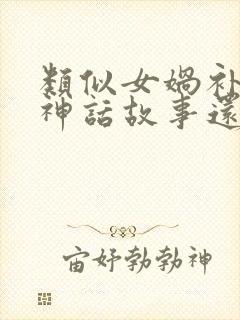 類似女媧补
神話故事還
宙好勃勃神